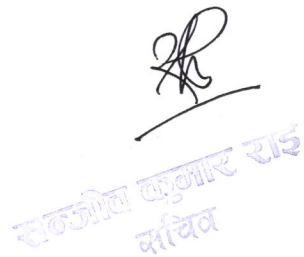 सन्जीव कुमार राई
सचिव